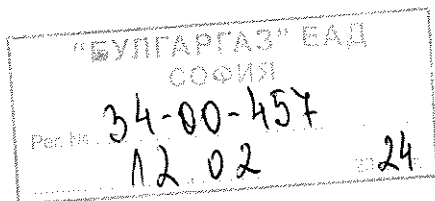 "БУЛГАРГАЗ" ЕАД
СОФИЯ
Рег. № 34-00-457
12.02 2024